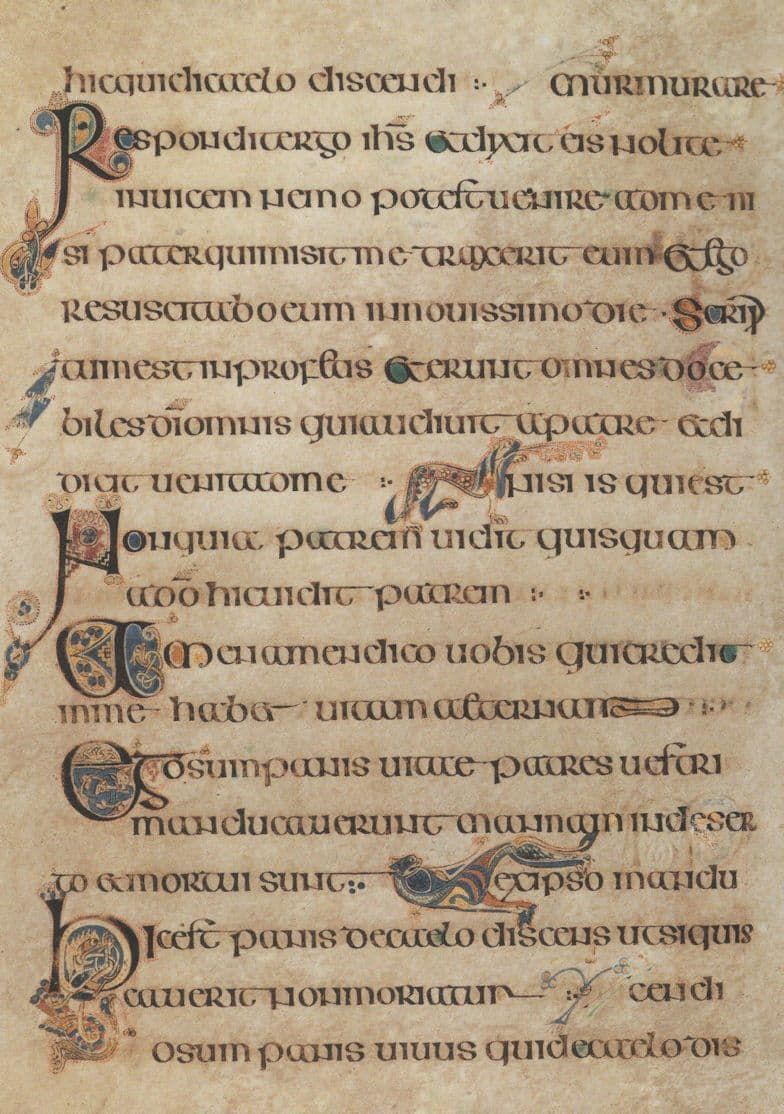 hicquidicaelo discendi :· murmurare
Respondit ergo ihs̄ et dixit eis nolite
inuicem nemo potest uenire ad me ni
si pater qui misit me traxerit eum et ego
resuscitabo eum in nouissimo die · Scrip
tum est in profetis et erunt omnes doce
biles dī omnis qui audiuit a patre et di
dicit uenit ad me :· nisi is qui est
Non quia patrem uidit quisquam
a dō hic uidit patrem :· :·
Amen amen dico uobis qui credit
in me habet uitam aeternam
Ego sum panis uitae patres uestri
manducauerunt manna in deser
to et mortui sunt :· ex ipso mandu
Hic est panis de caelo discens ut si quis
cauerit non moriatur :· cendi
osum panis uiuus qui de caelo dis